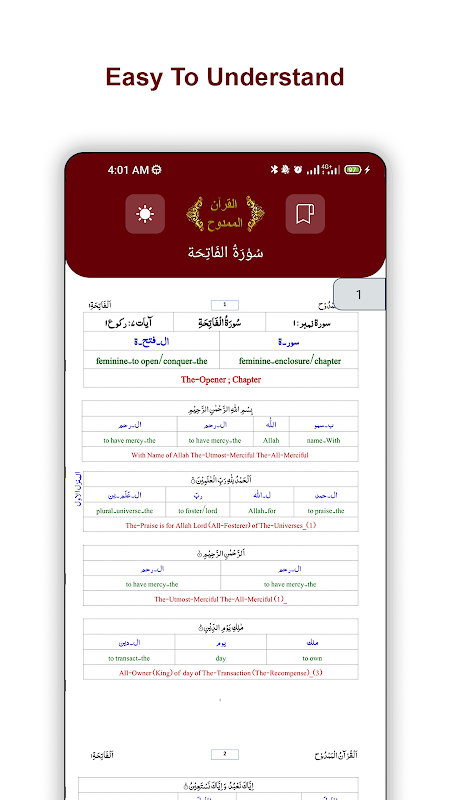 Easy To Understand
4:01 AM
4G+
97
القرآن
الممدوح
سُوْرَةُ الفَاتِحَة
1
اَلْفَاتِحَة١ 1
آیات ۷: رکوع۱ سُوْرَةُ الْفَاتِحَةِ سورۃ نمبر: ۱
ال-فتح-ة سور-ة
feminine-to open/conquer-the feminine-enclosure/chapter
The-Opener ; Chapter
بِسْمِ اللهِ الرَّحْمٰنِ الرَّحِيْمِ
ال-رحم ال-رحم اللّٰه ب-سمو
to have mercy-the to have mercy-the Allah name-With
With Name of Allah The-Utmost-Merciful The-All-Merciful
اَلْحَمْدُ لِلّٰهِ رَبِّ الْعٰلَمِيْنَ
ال-علم-ين ربّ ل-اللّٰه ال-حمد
plural-universe-the to foster/lord Allah-for to praise-the
The-Praise is for Allah Lord (All-Fosterer) of The-Universes_(1)
اَلرَّحْمٰنِ الرَّحِيْمِ
ال-رحم ال-رحم
to have mercy-the to have mercy-the
The-Utmost-Merciful The-All-Merciful (1)_
مٰلِكِ يَوْمِ الدِّيْنِ
ال-دين يوم ملك
to transact-the day to own
All-Owner (King) of day of The-Transaction (The-Recompense)_(3)
اَلْفَاتِحَة١ 2 اَلْقُرْآنُ الْمَمْدُوْح
اِيَّاكَ نَعْبُدُ وَاِيَّاكَ نَسْتَعِيْنُ